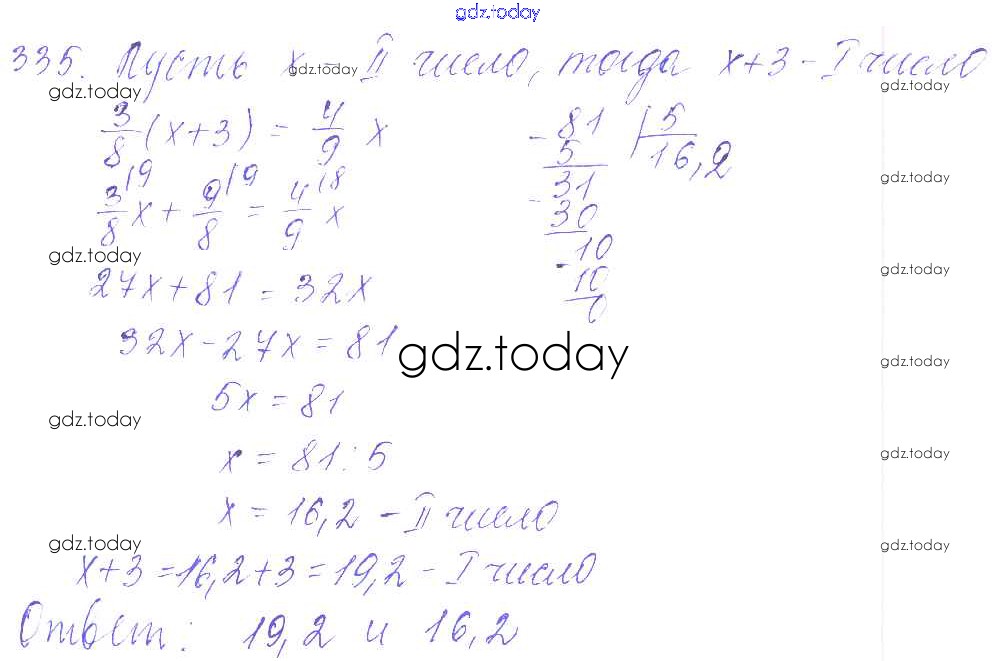 gdz.today
335. Пусть x – II число, тогда x+3 – I число
3/8 (x+3) = 4/9 x
3/8|9 x + 9/8|9 = 4/9|8 x
27x + 81 = 32x
32x – 27x = 81
5x = 81
x = 81 : 5
x = 16,2 – II число
x+3 = 16,2 + 3 = 19,2 – I число
Ответ: 19,2 и 16,2
– 81 | 5
5 16,2
31
– 30
10
– 10
0
gdz.today
gdz.today
gdz.today
gdz.today
gdz.today
gdz.today
gdz.today
gdz.today
gdz.today
gdz.today
gdz.today
gdz.today